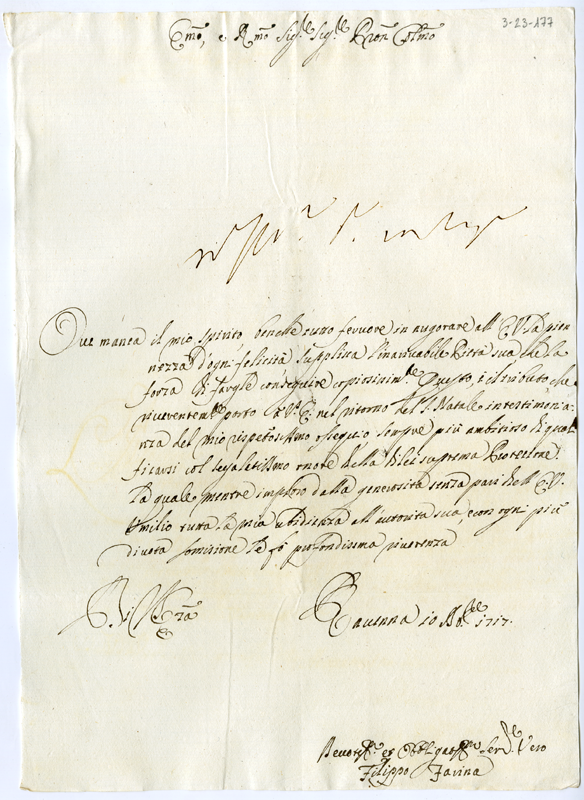 3-23-177
Emo, e Rmo Sig.re Sig.re Pron Colmo
Ove manca il mio spirito, benche tutto fervore in augurare all' E.V. la pie
nezza d'ogni felicità supplirà l'inarrivabile Pietà sua che la
forza di fargle conseguire copiosissim.te Questo, è il tributo, che
riverentem.te porto a V.a E. nel ritorno del S. Natale in testimonia
nza del mio rispettosissmo ossequio sempre più ambitioso di quali
ficarsi col segnalatissimo onore della di lei suprema Protetione.
La quale mentre imploro dalla generosità senza pari dell' E.V.
umilio tutta la mia ubidienza all' autorità sua, e con ogni più
divota somissione le fò profondissima riverenza
Di V. Emza
Ravenna 10 Xb.re 1717.
Devotis.o et Obbligatis.mo Ser.re Vero
Filippo Farina